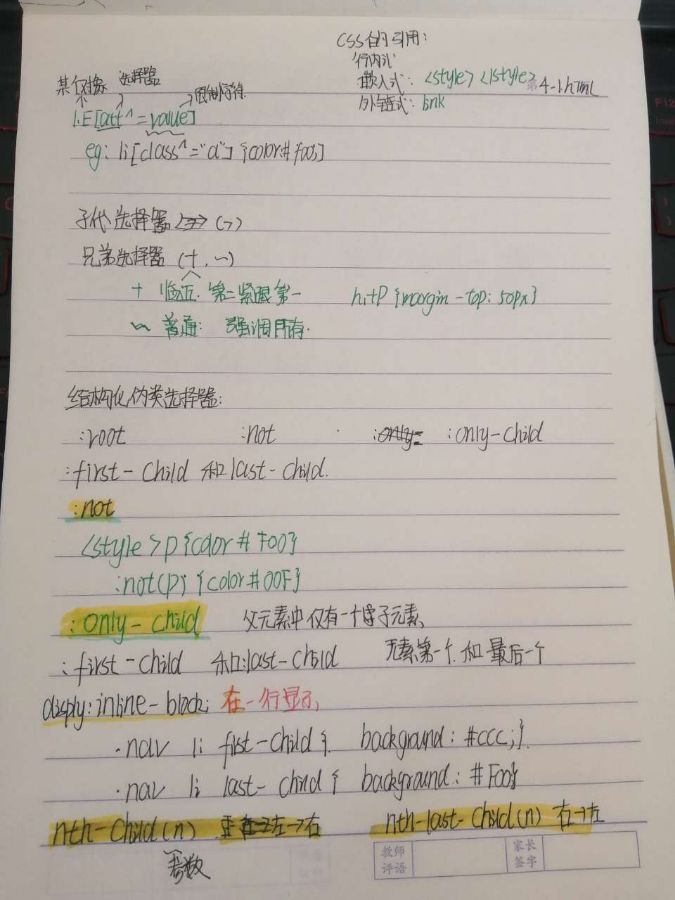 CSS的引用:
行内式
嵌入式: <style> </style> 4-1html
外链式: link
某个对象 选择器 限制字符
1.E[att^=value]
eg: li[class^="a"] {color:# f00;}
子代选择器 (>)
兄弟选择器 (+, ~)
+ 临近. 第二紧跟第一 h1+P {margin-top: 50px}
~ 普通: 强调所有.
结构化伪类选择器:
:root :not :only- :only-child
:first-child 和 last-child.
:not
<style> p {color # F00}
:not(p) {color #00F}
:only-child 父元素中仅有一个子元素
:first-child 和:last-child 元素第一个.和最后一个
disply: inline-block; 在一行显示
.nav li first-child { background: #ccc;}
.nav li last-child { background: #F00}
nth-child(n) 左→右 nth-last-child(n) 右→左
号数
教师评语 家长签字